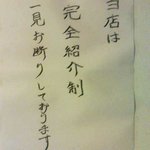 当店は
完全紹介制
一見お断りしております